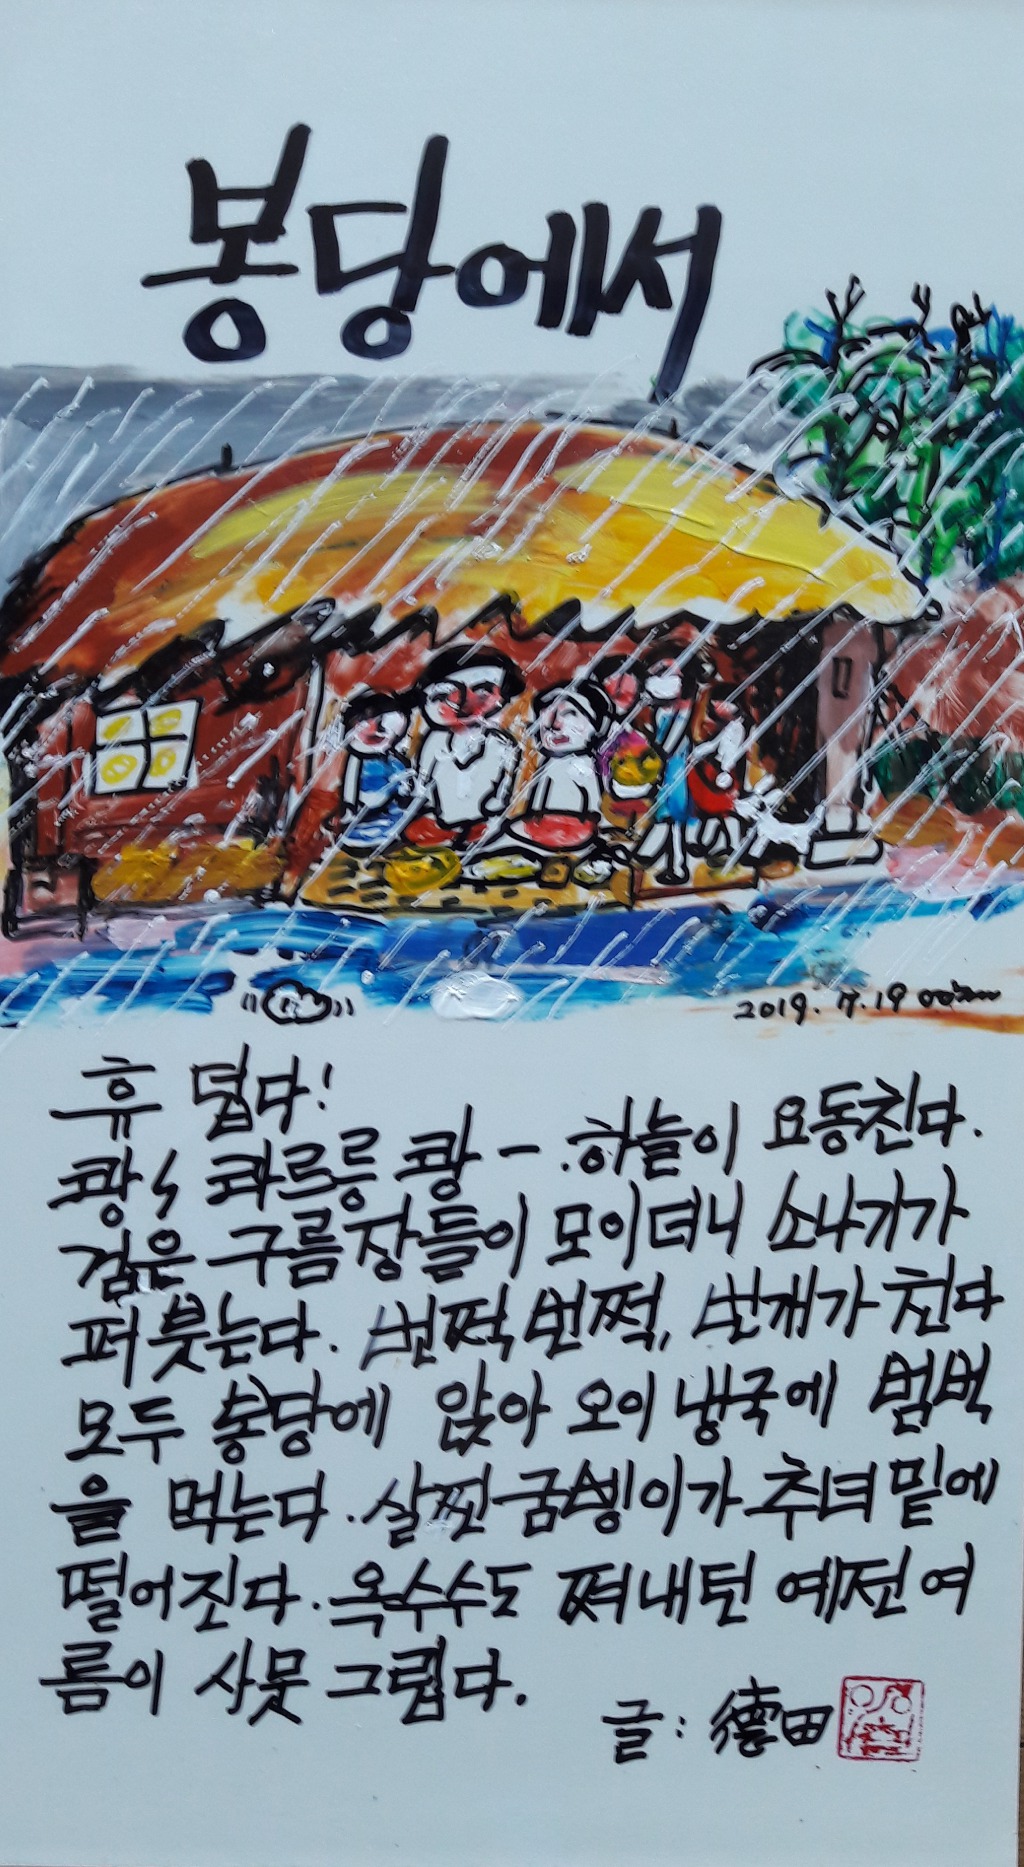 봉당에서
2019. 7. 19
휴 덥다!
쾅 콰르릉 쾅 - 하늘이 요동친다.
검은 구름장들이 모이더니 소나기가
퍼붓는다. 번쩍 번쩍, 번개가 친다
모두 봉당에 앉아 오이 냉국에 범벅
을 먹는다. 살찐 굼벵이가 추녀 밑에
떨어진다. 옥수수도 쪄내던 예전 여
름이 사뭇 그립다.
글: 德田